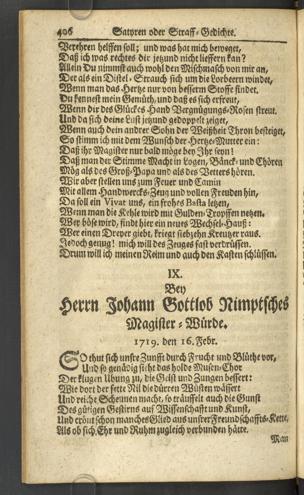 406 Satyren oder Straff-Gedichte.
Verehren helffen soll; und was hat mich beweget,
Daß ich was rechtes dir jetzund nicht liefern kan?
Allein Du nimmst auch wohl den Mischmasch von mir an,
Der als ein Distel-Strauch sich um die Lorbeern windet,
Wenn man das Hertze nur von besserm Stoffe findet.
Du kennest mein Gemüth, und daß es sich erfreut,
Wenn dir des Glückes Hand Vergnügungs-Rosen streut.
Und da sich deine Lust jetzund gedoppelt zeiget,
Wenn auch dein andrer Sohn der Weißheit Thron besteiget,
So stimm ich mit dem Wunsch der Hertze-Mutter ein:
Daß ihr Magister nur bald möge bey Ihr seyn!
Daß man der Stimme Macht in Logen, Bänck- und Chören
Mög als des Groß-Papa und als des Vetters hören.
Wir aber stellen uns zum Feuer und Camin
Mit allem Handwercks-Zeug und vollen Freuden hin,
Da soll ein Vivat uns, ein frohes Basta letzen,
Wenn man die Kehle wird mit Gulden-Tropffen netzen.
Wer böse wird, findt hier ein neues Wechsel-Hauß:
Wer einen Dreyer giebt, kriegt siebzehn Kreutzer raus.
Jedoch genug! mich will des Zeuges fast verdrüssen.
Drum will ich meinen Reim und auch den Kasten schlüssen.
IX.
Bey
Herrn Johann Gottlob Nimptsches
Magister-Würde.
1719. den 16. Febr.
SO thut sich unsre Zunfft durch Frucht und Blüthe vor,
Und so genädig sieht das holde Musen-Chor
Der klugen Ubung zu, die Geist und Zungen bessert:
Wie dort der fette Nil die dürren Wüsten wässert
Und reiche Scheunen macht, so träuffelt auch die Gunst
Des gütigen Gestirns auf Wissenschafft und Kunst,
Und crönt schon manches Glied aus unsrer Freundschaffts-Kette,
Als ob sich Ehr und Ruhm zugleich verbunden hätte.
Man